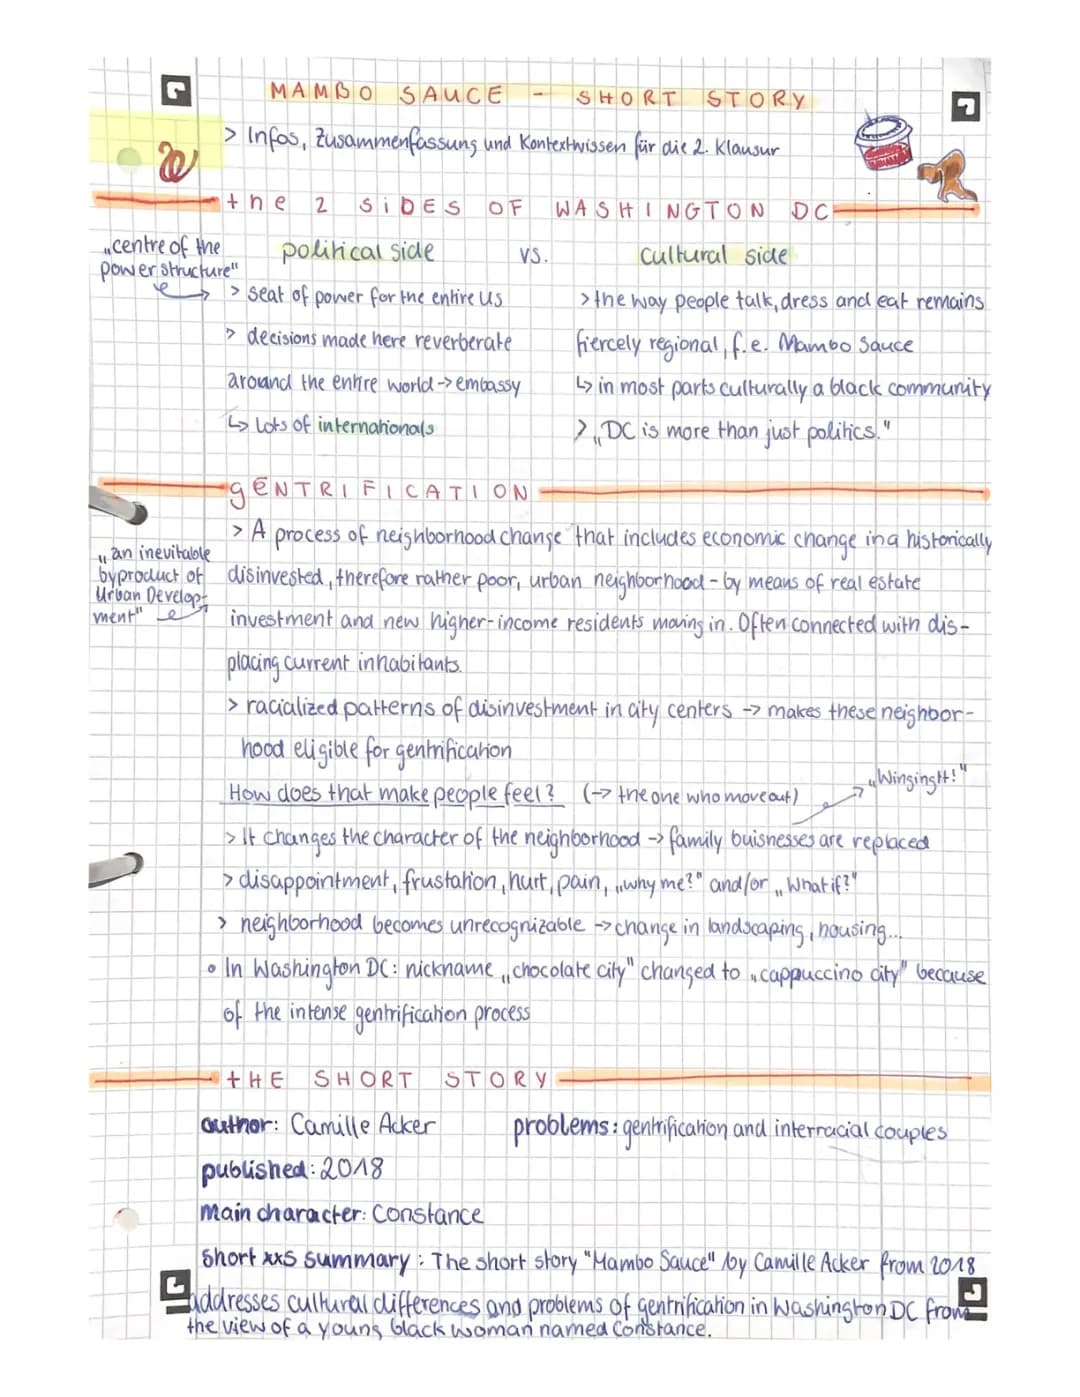 MAMBO SAUCE - SHORT STORY
> Infos, Zusammenfassung und Kontextwissen für die 2. Klausur
the 2 SiDES OF WASHINGTON DC
„centre of the
power structure"
political side vs. cultural side
> seat of power for the entire US
> decisions made here reverberate
around the entire world -> embassy
↳ Lots of internationals
> the way people talk, dress and eat remains
fiercely regional, f.e. Mambo Sauce
↳ in most parts culturally a black community
> „DC is more than just politics."
gENTRIFICATION
„an inevitable
byproduct of
Urban Develop-
ment"
> A process of neighborhood change that includes economic change in a historically
disinvested, therefore rather poor, urban neighborhood - by means of real estate
investment and new higher-income residents moving in. Often connected with dis-
placing current inhabitants.
> racialized patterns of disinvestment in city centers -> makes these neighbor-
hood eligible for gentrification
How does that make people feel? (-> the one who move out)
„WingingIt!"
> It changes the character of the neighborhood -> family buisnesses are replaced
> disappointment, frustation, hurt, pain, „why me?" and/or „What if?"
> neighborhood becomes unrecognizable -> change in landscaping, housing...
• In Washington DC: nickname „chocolate city" changed to „cappuccino city" because
of the intense gentrification process
tHE SHORT STORY
author: Camille Acker
problems: gentrification and interracial couples
published: 2018
main character: Constance
Short xxs summary: The short story "Mambo Sauce" by Camille Acker from 2018
addresses cultural differences and problems of gentrification in Washington DC from
the view of a young black woman named Constance.